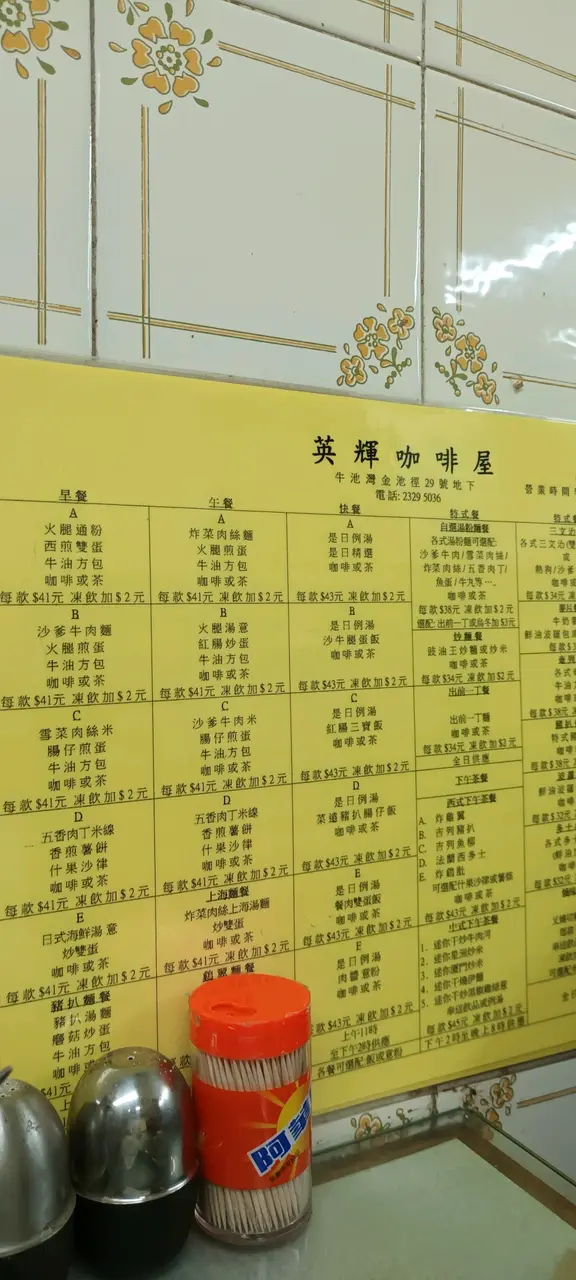 英輝咖啡屋
牛池灣金池徑29號地下
電話: 2329 5036
營業時間
早餐
A
火腿通粉
西煎雙蛋
牛油方包
咖啡或茶
每款$41元 凍飲加$2元
B
沙爹牛肉麵
火腿煎蛋
牛油方包
咖啡或茶
每款$41元 凍飲加$2元
C
雪菜肉絲米
腸仔煎蛋
牛油方包
咖啡或茶
每款$41元 凍飲加$2元
D
五香肉丁米線
香煎薯餅
什果沙律
咖啡或茶
每款$41元 凍飲加$2元
E
日式海鮮湯意
炒雙蛋
咖啡或茶
每款$41元 凍飲加$2元
豬扒麵餐
豬扒湯麵
磨菇炒蛋
牛油方包
咖啡或
$41元
午餐
A
炸菜肉絲麵
火腿煎蛋
牛油方包
咖啡或茶
每款$41元 凍飲加$2元
B
火腿湯意
紅腸炒蛋
牛油方包
咖啡或茶
每款$41元 凍飲加$2元
C
沙爹牛肉米
腸仔煎蛋
牛油方包
咖啡或茶
每款$41元 凍飲加$2元
D
五香肉丁米線
香煎薯餅
什果沙律
咖啡或茶
每款$41元 凍飲加$2元
上海麵餐
炸菜肉絲上海湯麵
炒雙蛋
咖啡或茶
每款$41元 凍飲加$2元
快餐
A
是日例湯
是日精選
咖啡或茶
每款$43元 凍飲加$2元
B
是日例湯
沙牛腿蛋飯
咖啡或茶
每款$43元 凍飲加$2元
C
是日例湯
紅腸三寶飯
咖啡或茶
每款$43元 凍飲加$2元
D
是日例湯
菜遠豬扒腸仔飯
咖啡或茶
每款$43元 凍飲加$2元
E
是日例湯
餐肉雙蛋飯
咖啡或茶
每款$43元 凍飲加$2元
F
是日例湯
肉醬意粉
咖啡或茶
每款$43元 凍飲加$2元
上午11時
至下午2時供應
各餐可選配飯或意粉
特式餐
自選湯粉麵餐
各式湯粉麵可選配:
沙爹牛肉/雪菜肉絲/
炸菜肉絲/五香肉丁/
魚蛋/牛丸等…
咖啡或茶
每款$38元 凍飲加$2元
選配: 出前一丁或烏冬加$3元
炒麵餐
豉油王炒麵或炒米
咖啡或茶
每款$34元 凍飲加$2元
出前一丁餐
出前一丁麵
咖啡或茶
每款$34元 凍飲加$2元
全日供應
下午茶餐
西式下午茶餐
A. 炸雞翼
B. 吉列豬扒
C. 吉列魚柳
D. 法蘭西多士
E. 炸雞肶
可選配什果沙律或薯條
咖啡或茶
每款$43元 凍飲加$2元
中式下午茶餐
1. 迷你干炒牛肉河
2. 迷你星洲炒米
3. 迷你廈門炒米
4. 迷你干燒伊麵
每款$45元 凍飲加$2元
下午2時至晚上8時供應
阿華田